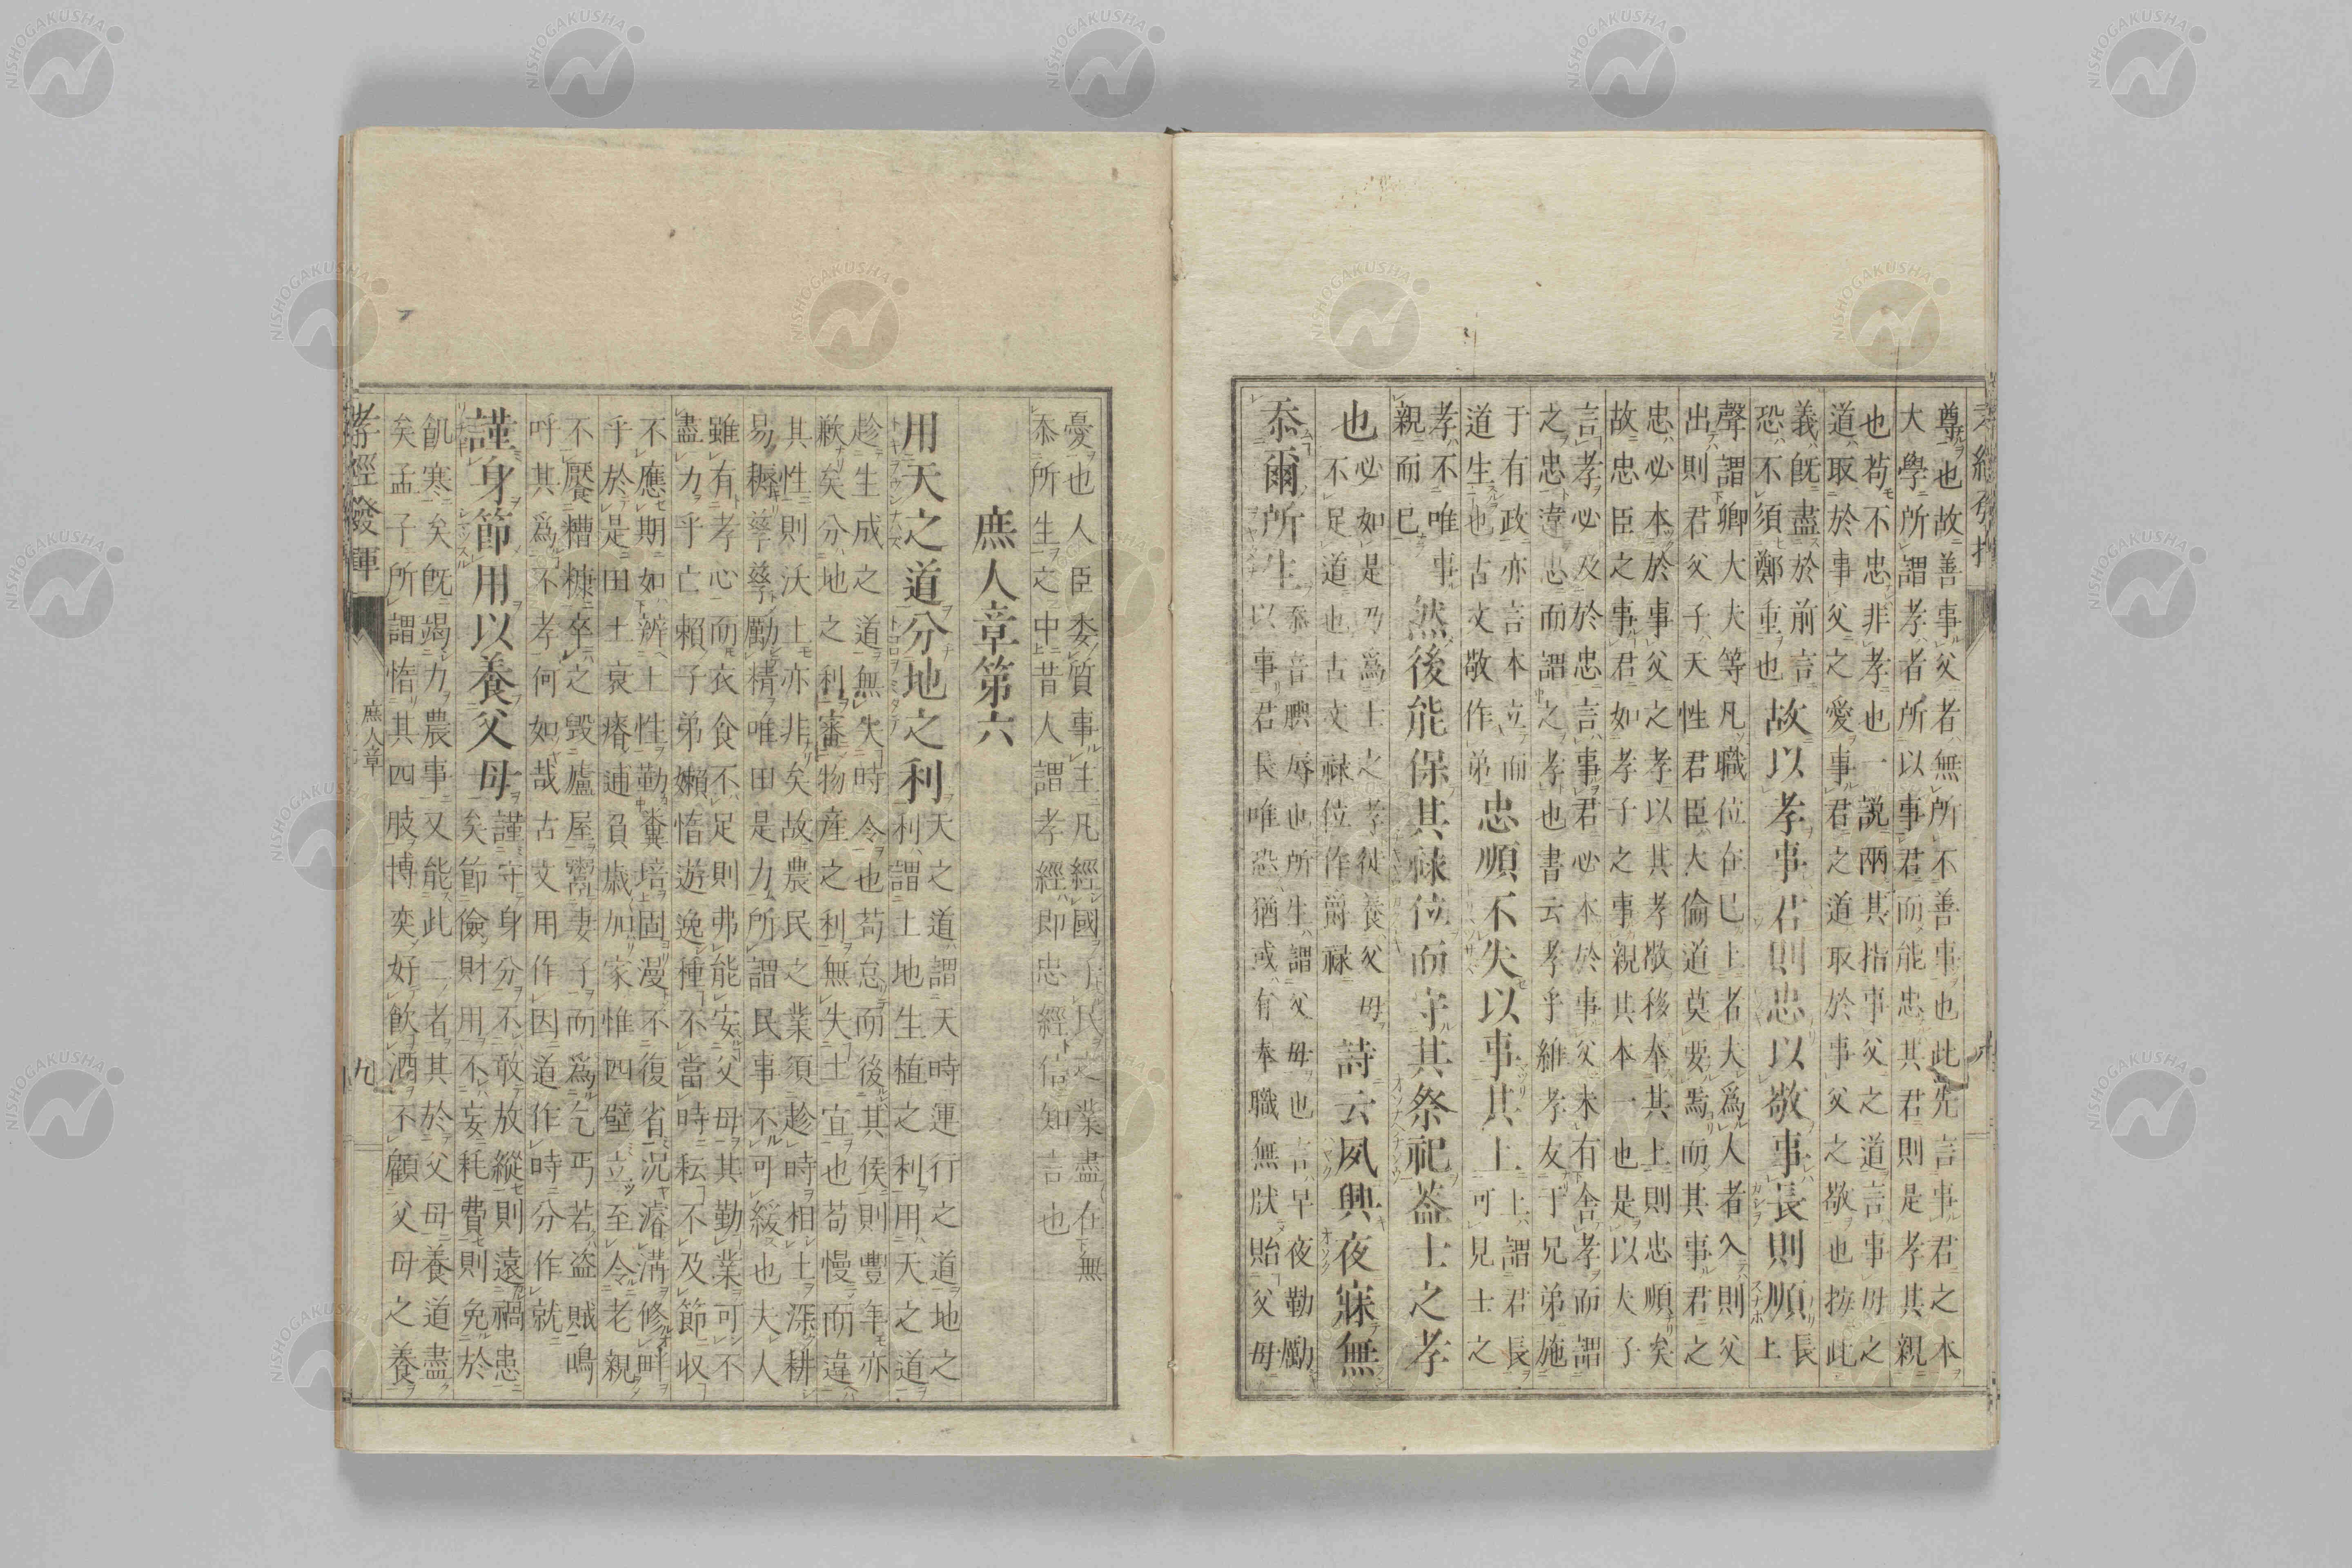 尊也故善事父者無所不善事也此先言事君之本
大學所謂孝者所以事君而能忠其君則是孝其親
也苟不忠非孝也一説兩其指事父之道言事母之
道取於事父之愛事君之道取於事父之敬也按此
義旣盡於前言
恐不須鄭重也
故以孝事君則忠以敬事長則順
長
上
聲謂卿大夫等凡職位在已上者大爲人者入則父
出則君父子天性君臣大倫道莫要焉而其事君之
忠必本於事父之孝以其孝敬移奉其上則忠順矣
故忠臣之事君如孝子之事親其本一也是以大子
言孝必及於忠言事君必本於事父未有舍孝而謂
之忠違忠而謂之孝也書云孝乎維孝友于兄弟施
于有政亦言本立而
道生也古文敬作弟
忠順不失以事其上
上謂君長
可見士之
孝不唯事
親而已
然後能保其祿位而守其祭祀蓋士之孝
也
必如是乃爲士之孝徒養父母
不足道也古文祿位作爵祿
詩云夙興夜寐無
忝爾所生
忝音腆辱也所生謂父母也言早夜勤勵
以事君長唯恐猶或有奉職無狀貽父母
憂也人臣委質事主凡經國子民之業盡在無
忝所生之中昔人謂孝經即忠經信知言也
庶人章第六
用天之道分地之利
天之道謂天時運行之道地之
利謂土地生植之利用天之道
趁生成之道無失時令也苟怠而後其侯則豐年亦
歉矣分地之利審物産之利無失土宜也苟慢而違
其性則沃土亦非矣故農民之業須趁時相土深耕
易耨孳孳勵精唯田是力所謂民事不可緩也夫人
雖有孝心而衣食不足則弗能安父母其勤業可不
盡力乎亡賴子弟嬾惰遊逸種不當時耘不及節收
不應期如辨土性勤糞培固漫不復省况濬溝修畔
乎於是田土衰瘠逋負歲加家惟四壁立至令老親
不饜糟糠卒之毀廬屋鬻妻子而爲乞丐若盗賊鳴
呼其爲不孝何如哉古文用作因道作時分作就
謹身節用以養父母
謹守身分不敢放縱則遠禍患
矣節儉財用不妄耗費則免於
飢寒矣旣竭力農事又能此二者其於父母養道盡
矣孟子所謂惰其四肢博奕好飮酒不顧父母之養
孝經發揮
庶人章
九